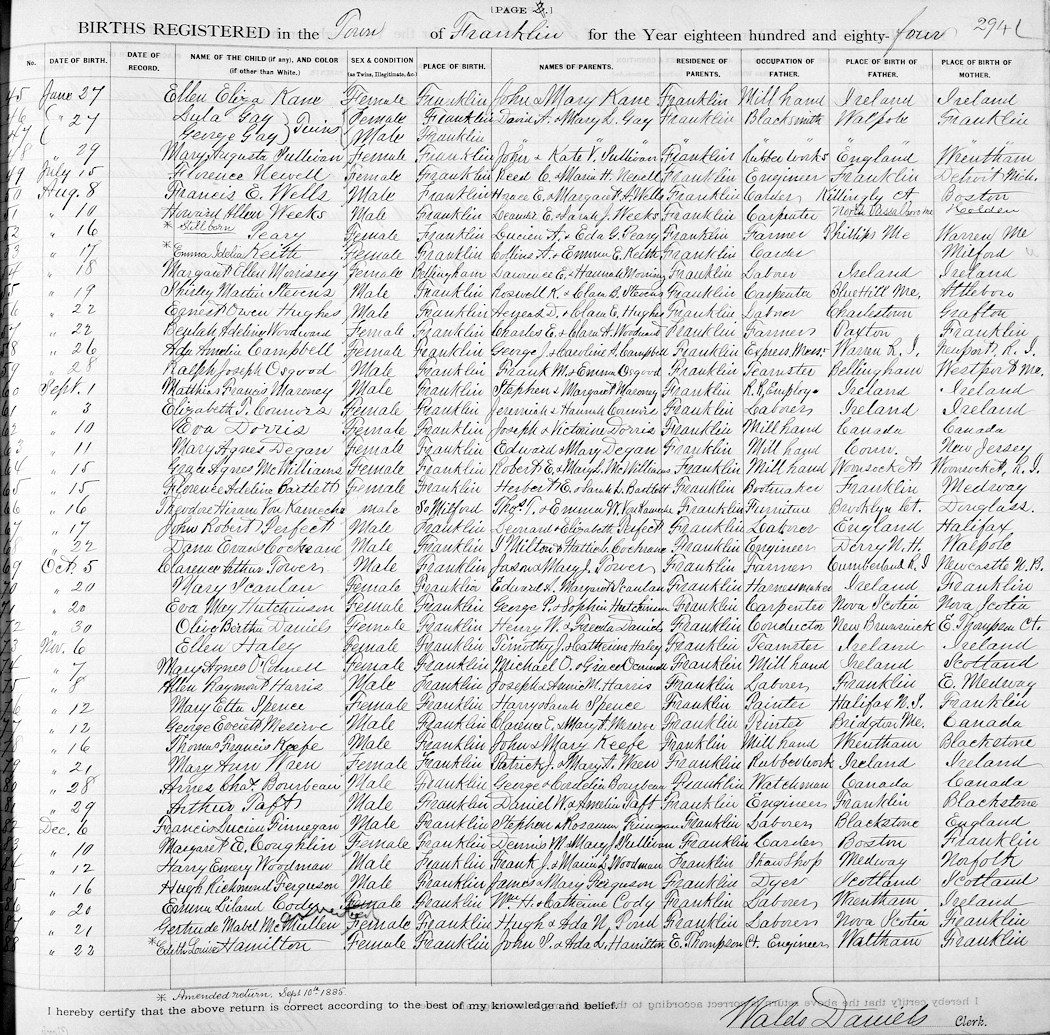 [PAGE 2.]
BIRTHS REGISTERED in the Town of Franklin for the Year eighteen hundred and eighty-four 294
No. DATE OF BIRTH. DATE OF RECORD. NAME OF THE CHILD (if any), AND COLOR (if other than White.) SEX & CONDITION (as Twins, Illegitimate, &c.) PLACE OF BIRTH. NAMES OF PARENTS. RESIDENCE OF PARENTS. OCCUPATION OF FATHER. PLACE OF BIRTH OF FATHER. PLACE OF BIRTH OF MOTHER.
45 June 27 Ellen Eliza Kane Female Franklin John & Mary Kane Franklin Mill hand Ireland Ireland
46 " 27 Lula Gay } Twins Female Franklin David A. & Mary L. Gay Franklin Blacksmith Walpole Franklin
47 George Gay Male Franklin
48 " 29 Mary Augusta Sullivan Female Franklin John & Kate V. Sullivan Franklin Rubber works England Wrentham
49 July 15 Florence Newell Female Franklin Reed C. & Maria H. Newell Franklin Engineer Franklin Detroit Mich.
50 Aug. 8 Francis E. Wells Male Franklin Horace E. & Margaret A. Wells Franklin Carder Killingly Ct Boston
51 " 10 Howard Allen Weeks Male Franklin & Sarah J. Weeks Franklin Carpenter North Holden
52 " 16 * Stillborn Peary Female Franklin Lucien A. & Eda G. Peary Franklin Farmer Phillips Me Warren Me
53 " 17 * Emma Idelia Keith Female Franklin Collins A. & Emma E. Keith Franklin Carder Milford
54 " 18 Margaret Ellen Morrissey Female Bellingham Lawrence E. & Hannah Franklin Laborer Ireland Ireland
55 " 19 Shirley Martin Stevens Male Franklin Roswell K. & Clara B. Stevens Franklin Carpenter Bluehill Me. Attleboro
56 " 22 Ernest Owen Hughes Male Franklin D. & Clara E. Hughes Franklin Laborer Charlestown Grafton
57 " 22 Beulah Adeline Woodward Female Franklin Charles E. & Clara A. Woodward Franklin Farmer Paxton Franklin
58 " 26 Ada Amelia Campbell Female Franklin George J. & Caroline A. Campbell Franklin Express Warren R. I. Newport R. I.
59 " 28 Ralph Joseph Osgood Male Franklin Frank M. & Emma Osgood Franklin Teamster Bellingham Westport Me.
60 Sept. 1 Matthias Francis Maroney Male Franklin Stephen & Margaret Maroney Franklin R. R. Employe Ireland Ireland
61 " 3 Elizabeth T. Connors Female Franklin Jeremiah & Hannah Connors Franklin Laborer Ireland Ireland
62 " 10 Eva Dorris Female Franklin Joseph & Victorine Dorris Franklin Mill hand Canada Canada
63 " 11 Mary Agnes Degan Female Franklin Edward & Mary Degan Franklin Mill hand Conn. New Jersey
64 " 15 Grace Agnes McWilliams Female Franklin Robert E. & Mary L. McWilliams Franklin Mill hand Woonsocket Woonsocket, R. I.
65 " 15 Florence Adeline Bartlett Female Franklin Herbert E. & Sarah L. Bartlett Franklin Bootmaker Franklin Medway
66 " 16 Theodore Hiram Von Kamecke male So Milford Thos. V. & Emma W. Von Kamecke Franklin Furniture Brooklyn Ct. Douglass.
67 " 17 John Robert Perfect Male Franklin & Elizabeth Perfect Franklin Laborer England Halifax
68 " 22 Dana Evans Cochrane Male Franklin J. Milton & Hattie L. Cochrane Franklin Engineer Derry N. H. Walpole
69 Oct. 5 Clarence Arthur Tower Male Franklin Jason & Mary J. Tower Franklin Farmer Cumberland R. I Newcastle N. B.
70 " 20 Mary Scanlan Female Franklin Edward & Margaret Scanlan Franklin Harnessmaker Ireland Franklin
71 " 20 Eva May Hutchinson Female Franklin George P. & Sophia Hutchinson Franklin Carpenter Nova Scotia Nova Scotia
72 " 30 Olive Bertha Daniels Female Franklin Henry W. & Freda Daniels Franklin Conductor New Brunswick E. Thompson Ct.
73 Nov. 6 Ellen Haley Female Franklin Timothy J. & Catherine Haley Franklin Teamster Ireland Ireland
74 " 7 Mary Agnes O'Connell Female Franklin Michael O. & Grace Franklin Mill hand Ireland Scotland
75 " 8 Allen Raymond Harris Male Franklin Joseph & Annie M. Harris Franklin Laborer Franklin E. Medway
76 " 12 Mary Etta Spence Female Franklin Harry & Sarah Spence Franklin Painter Halifax N. S. Franklin
77 " 12 George Everett Meserve Male Franklin Clarence E. & Mary A. Meserve Franklin Printer Bridgton Me. Canada
78 " 16 Thomas Francis Keefe Male Franklin John & Mary Keefe Franklin Mill hand Wrentham Blackstone
79 " 21 Mary Ann Wren Female Franklin Patrick J. & Mary A. Wren Franklin Rubber work Ireland Ireland
80 " 28 Chas. Bourbeau Male Franklin George & Ordelia Bourbeau Franklin Watchman Canada Canada
81 " 29 Arthur Taft Male Franklin Daniel W. & Amelia Taft Franklin Engineer Franklin Blackstone
82 Dec. 6 Francis Lucien Finnegan Male Franklin Stephen & Rosanna Finnegan Franklin Laborer Blackstone England
83 " 10 Margaret E. Coughlin Female Franklin Dennis W. & Mary J. Sullivan Franklin Carder Boston Franklin
84 " 12 Harry Emery Woodman Male Franklin Frank J. & Maria S. Woodman Franklin Straw Shop Medway Norfolk
85 " 16 Hugh Richmond Ferguson Male Franklin James & Mary Ferguson Franklin Dyer Scotland Scotland
86 " 20 Emma Liland Cody Female Franklin Wm. H. & Catherine Cody Franklin Laborer Wrentham Ireland
87 " 21 Gertrude Mabel McMullen Female Franklin Hugh & Ada N. Pond Franklin Laborer Nova Scotia Franklin
88 " 22 * Edith Louise Hamilton Female Franklin John S. & Ada L. Hamilton E. Thompson Ct. Engineer Waltham Franklin
* Amended return, Sept 10th 1885
I hereby certify that the above return is correct according to the best of my knowledge and belief.
Waldo Daniels Clerk.